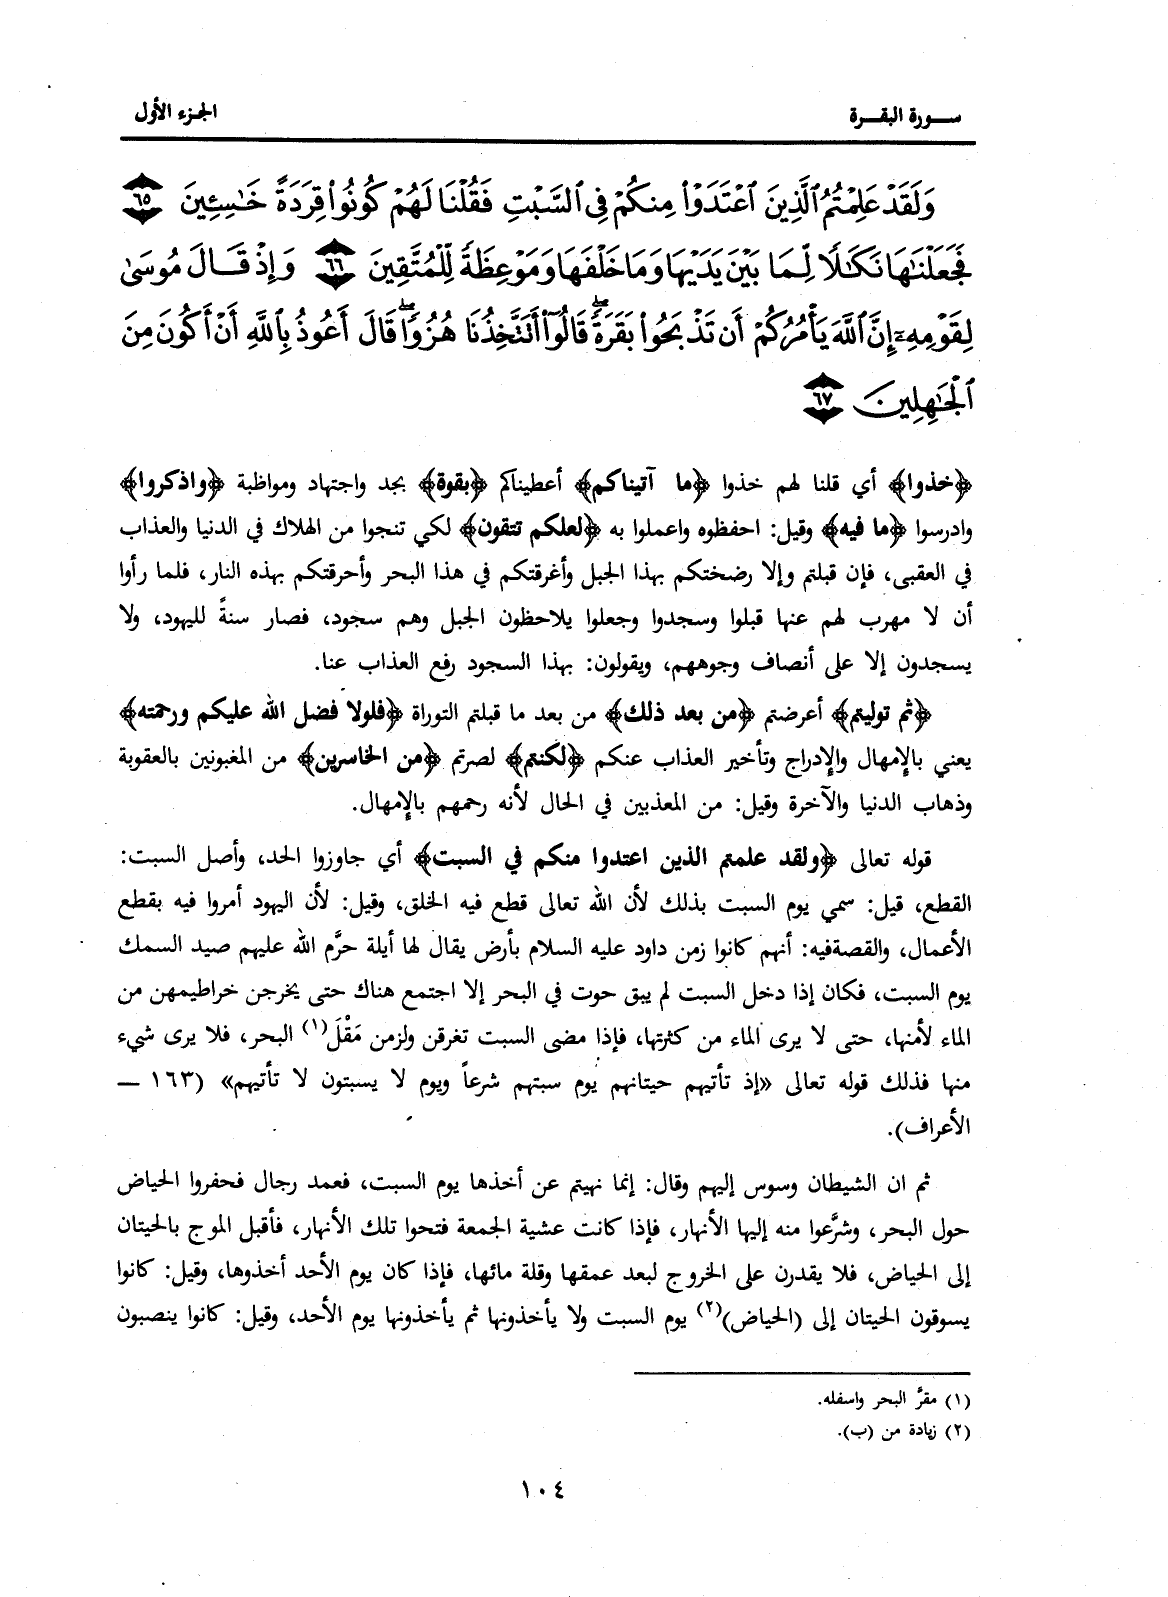 سـورة البقـرة
الجزء الأول
وَلَقَدْ عَلِمْتُمُ ٱلَّذِينَ ٱعْتَدَوْا۟ مِنكُمْ فِى ٱلسَّبْتِ فَقُلْنَا لَهُمْ كُونُوا۟ قِرَدَةً خَـٰسِـِٔينَ ٦٥
فَجَعَلْنَـٰهَا نَكَـٰلًا لِّمَا بَيْنَ يَدَيْهَا وَمَا خَلْفَهَا وَمَوْعِظَةً لِّلْمُتَّقِينَ ٦٦ وَإِذْ قَالَ مُوسَىٰ
لِقَوْمِهِۦٓ إِنَّ ٱللَّهَ يَأْمُرُكُمْ أَن تَذْبَحُوا۟ بَقَرَةً ۖ قَالُوٓا۟ أَتَتَّخِذُنَا هُزُوًا ۖ قَالَ أَعُوذُ بِٱللَّهِ أَنْ أَكُونَ مِنَ
ٱلْجَـٰهِلِينَ ٦٧
﴿خذوا﴾ أي قلنا لهم خذوا ﴿ما آتيناكم﴾ أعطيناكم ﴿بقوة﴾ بجد واجتهاد ومواظبة ﴿واذكروا﴾
وادرسوا ﴿ما فيه﴾ وقيل: احفظوه واعملوا به ﴿لعلكم تتقون﴾ لكي تنجوا من الهلاك في الدنيا والعذاب
في العقبى، فإن قبلتم وإلا رضختكم بهذا الجبل وأغرقتكم في هذا البحر وأحرقتكم بهذه النار، فلما رأوا
أن لا مهرب لهم عنها قبلوا وسجدوا وجعلوا يلاحظون الجبل وهم سجود، فصار سنةً لليهود، ولا
يسجدون إلا على أنصاف وجوههم، ويقولون: بهذا السجود رفع العذاب عنا.
﴿ثم توليتم﴾ أعرضتم ﴿من بعد ذلك﴾ من بعد ما قبلتم التوراة ﴿فلولا فضل الله عليكم ورحمته﴾
يعني بالإمهال والإدراج وتأخير العذاب عنكم ﴿لكنتم﴾ لصرتم ﴿من الخاسرين﴾ من المغبونين بالعقوبة
وذهاب الدنيا والآخرة وقيل: من المعذبين في الحال لأنه رحمهم بالإمهال.
قوله تعالى ﴿ولقد علمتم الذين اعتدوا منكم في السبت﴾ أي جاوزوا الحد، وأصل السبت:
القطع، قيل: سمي يوم السبت بذلك لأن الله تعالى قطع فيه الخلق، وقيل: لأن اليهود أمروا فيه بقطع
الأعمال، والقصةفيه: أنهم كانوا زمن داود عليه السلام بأرض يقال لها أيلة حرَّم الله عليهم صيد السمك
يوم السبت، فكان إذا دخل السبت لم يبق حوت في البحر إلا اجتمع هناك حتى يخرجن خراطيمهن من
الماء لأمنها، حتى لا يرى الماء من كثرتها، فإذا مضى السبت تغرقن ولزمن مَقْلَ(١) البحر، فلا يرى شيء
منها فذلك قوله تعالى «إذ تأتيهم حيتانهم يوم سبتهم شرعاً ويوم لا يسبتون لا تأتيهم» (١٦٣ —
الأعراف).
ثم ان الشيطان وسوس إليهم وقال: إنما نهيتم عن أخذها يوم السبت، فعمد رجال فحفروا الحياض
حول البحر، وشرَّعوا منه إليها الأنهار، فإذا كانت عشية الجمعة فتحوا تلك الأنهار، فأقبل الموج بالحيتان
إلى الحياض، فلا يقدرن على الخروج لبعد عمقها وقلة مائها، فإذا كان يوم الأحد أخذوها، وقيل: كانوا
يسوقون الحيتان إلى (الحياض)(٢) يوم السبت ولا يأخذونها ثم يأخذونها يوم الأحد، وقيل: كانوا ينصبون
(١) مقرَّ البحر واسفله.
(٢) زيادة من (ب).
١٠٤